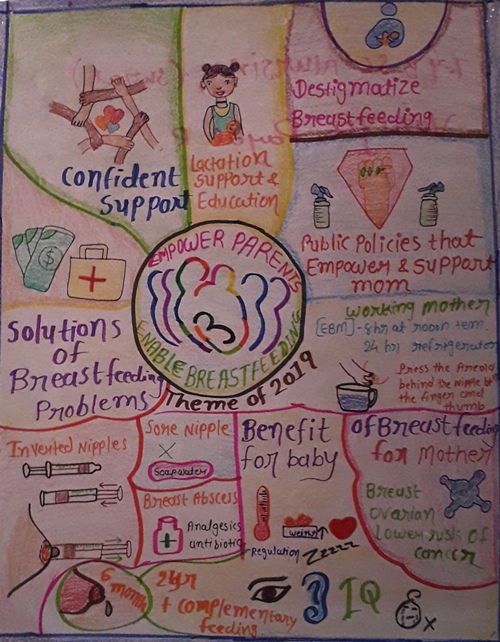 Destigmatize
Breastfeeding
Confident
Support
Lactation
Support &
Education
Public Policies that
Empower & support
mom
EMPOWER PARENTS
ENABLE BREASTFEEDING
Theme of 2019
Working mother
[EBM] - 8hr at room tem.
24 hr refrigerator
Press the Areola
behind the Nipple b/t
the finger and
thumb
Solutions
of
Breastfeeding
Problems
Inverted Nipples
Sore Nipple
X
Soap water
Breast Abscess
Analgesics
Antibiotic
Benefit
for baby
Weight
Regulation
Zzzzz
of Breastfeeding
for Mother
Breast
ovarian
Lower risk of
cancer
6
month
2yr
+ complementary
feeding
IQ
x